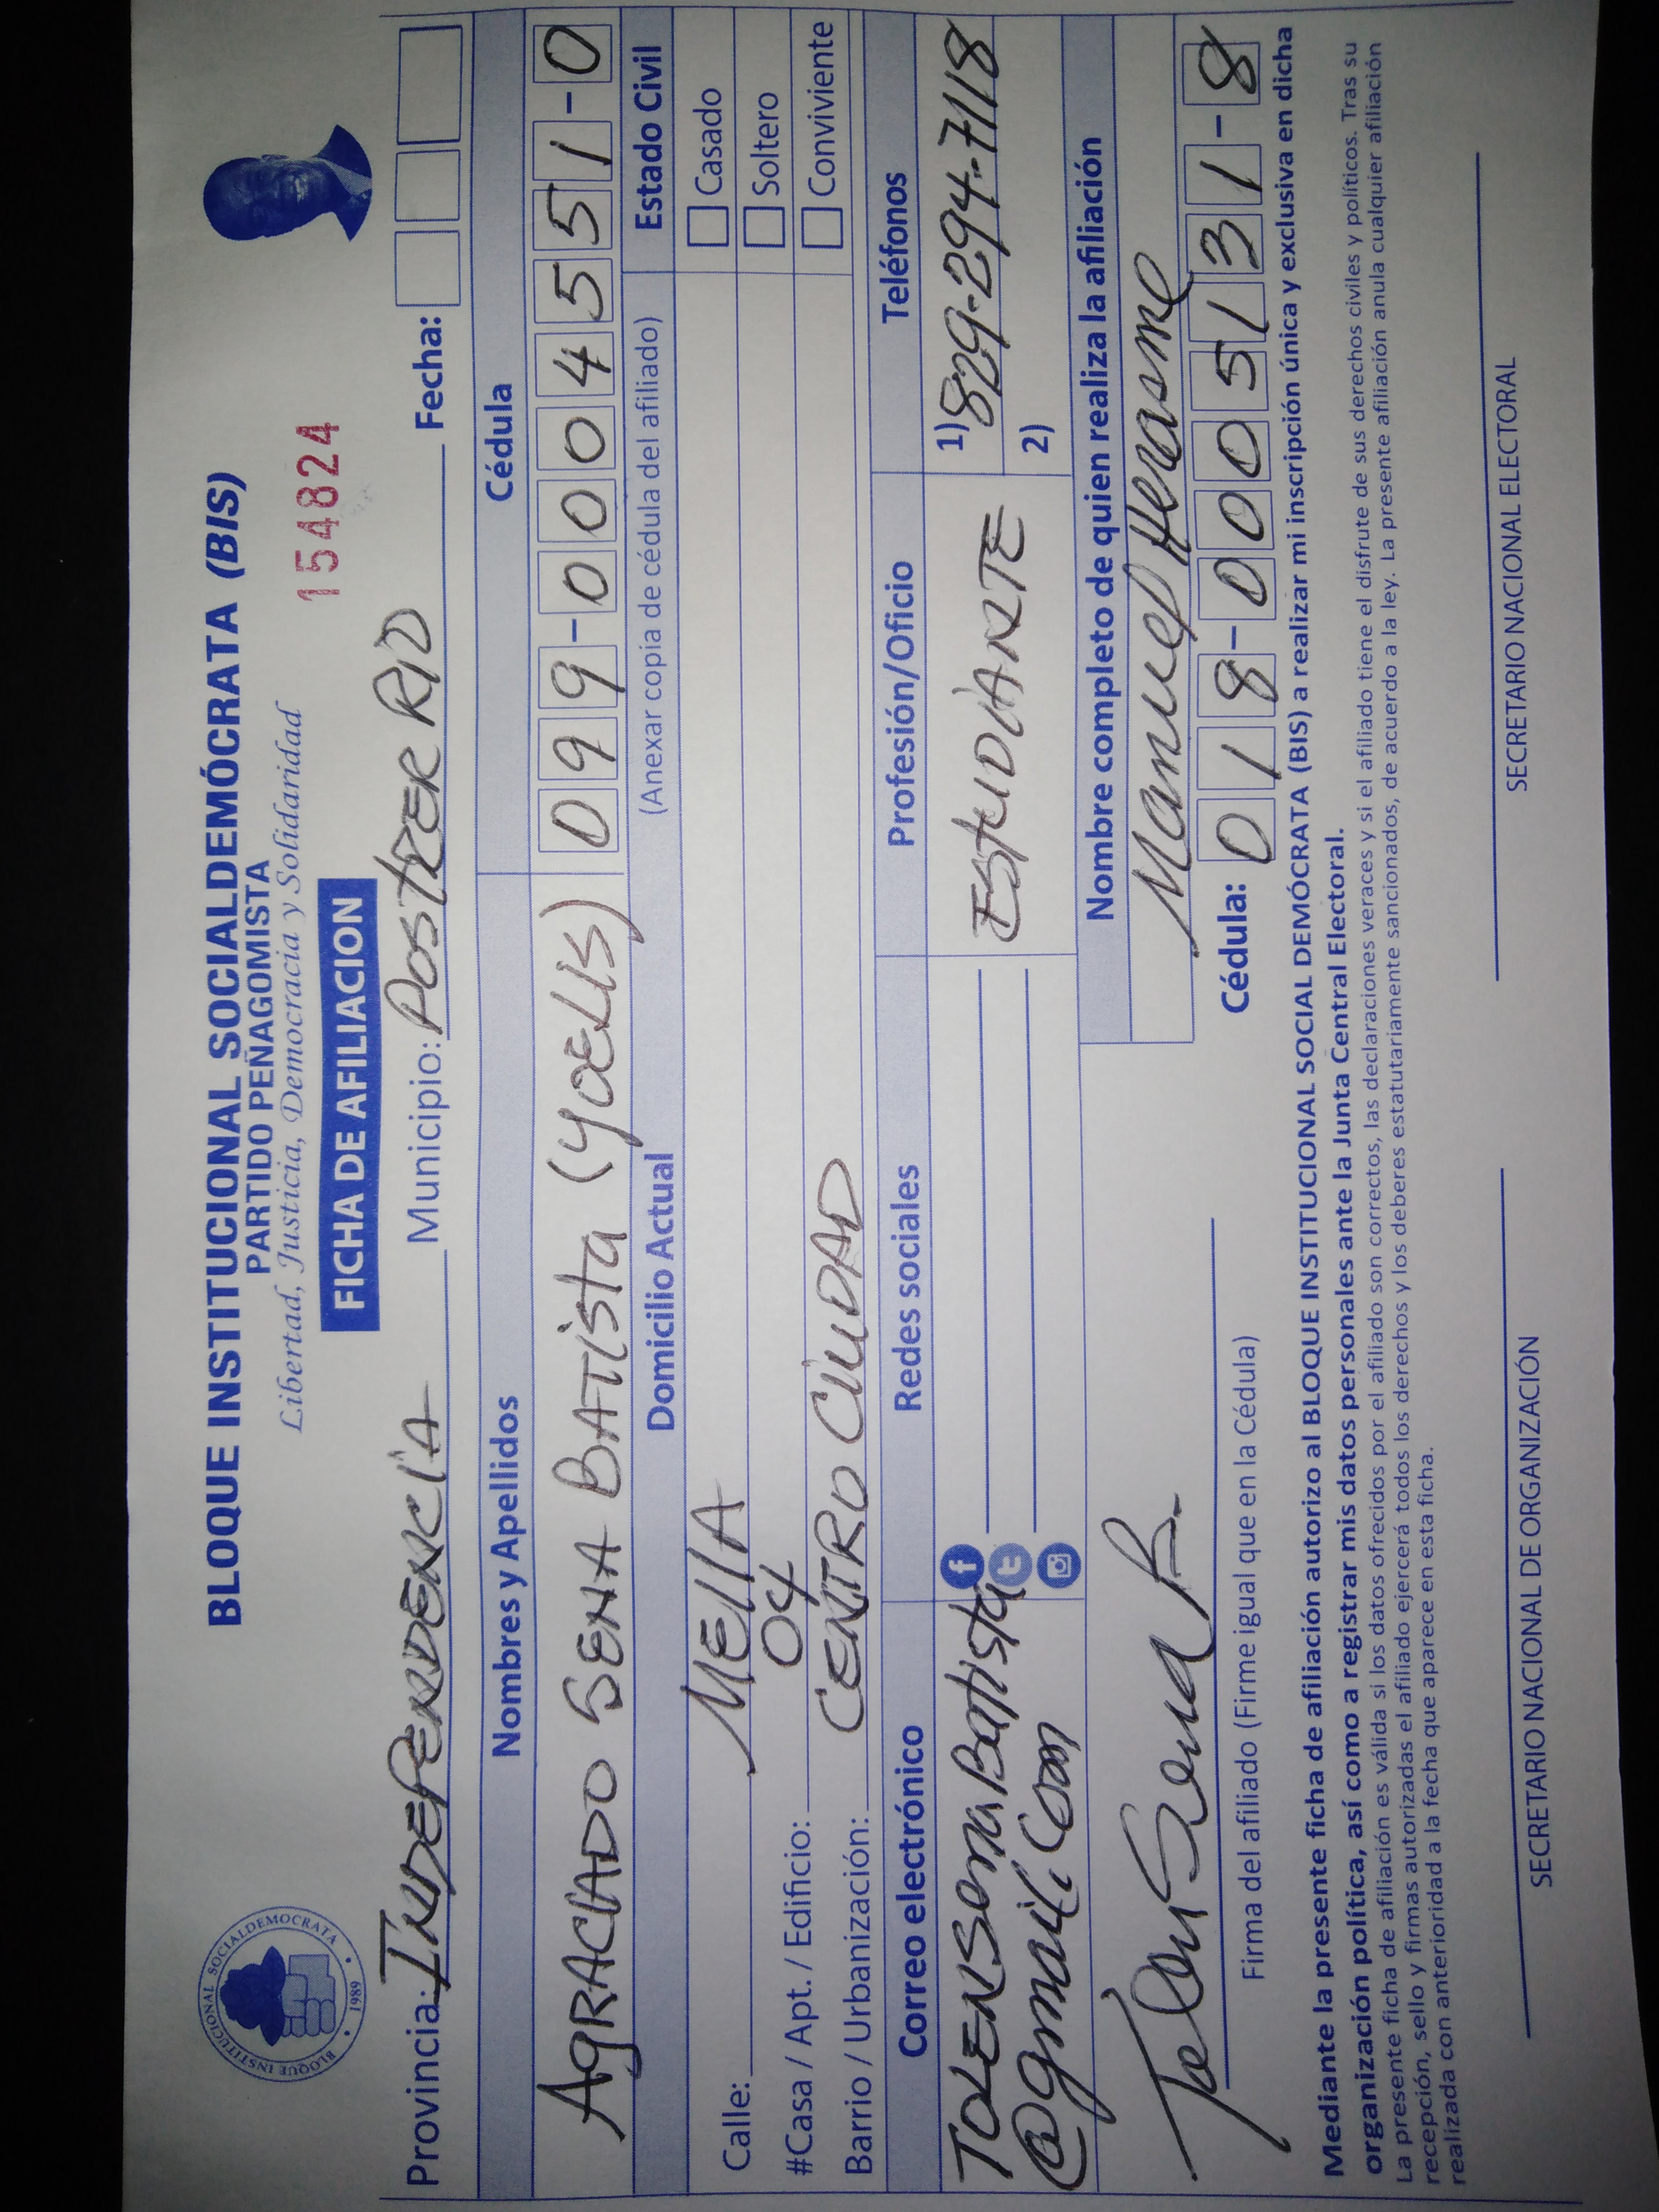 BLOQUE INSTITUCIONAL SOCIALDEMÓCRATA (BIS)
PARTIDO PEÑAGOMISTA
Libertad, Justicia, Democracia y Solidaridad
BLOQUE INSTITUCIONAL SOCIALDEMOCRATA
1989
154824
FICHA DE AFILIACION
Provincia: INDEPENDENCIA Municipio: POSTRER RIO Fecha:
Nombres y Apellidos Cédula
AGRACIADO SENA BATISTA (YOELIS) 099-0004551-0
Domicilio Actual (Anexar copia de cédula del afiliado) Estado Civil
Calle: MELLA Casado
#Casa / Apt. / Edificio: 04 Soltero
Barrio / Urbanización: CENTRO CIUDAD Conviviente
Correo electrónico Redes sociales Profesión/Oficio Teléfonos
ESTUDIANTE 1) 829-294-7118
@gmail.com 2)
Nombre completo de quien realiza la afiliación
Manuel Herasme
Cédula: 018-0005131-8
Firma del afiliado (Firme igual que en la Cédula)
Mediante la presente ficha de afiliación autorizo al BLOQUE INSTITUCIONAL SOCIAL DEMÓCRATA (BIS) a realizar mi inscripción única y exclusiva en dicha
organización política, así como a registrar mis datos personales ante la Junta Central Electoral.
La presente ficha de afiliación es válida si los datos ofrecidos por el afiliado son correctos, las declaraciones veraces y si el afiliado tiene el disfrute de sus derechos civiles y políticos. Tras su
recepción, sello y firmas autorizadas el afiliado ejercerá todos los derechos y los deberes estatutariamente sancionados, de acuerdo a la ley. La presente afiliación anula cualquier afiliación
realizada con anterioridad a la fecha que aparece en esta ficha.
SECRETARIO NACIONAL DE ORGANIZACIÓN SECRETARIO NACIONAL ELECTORAL